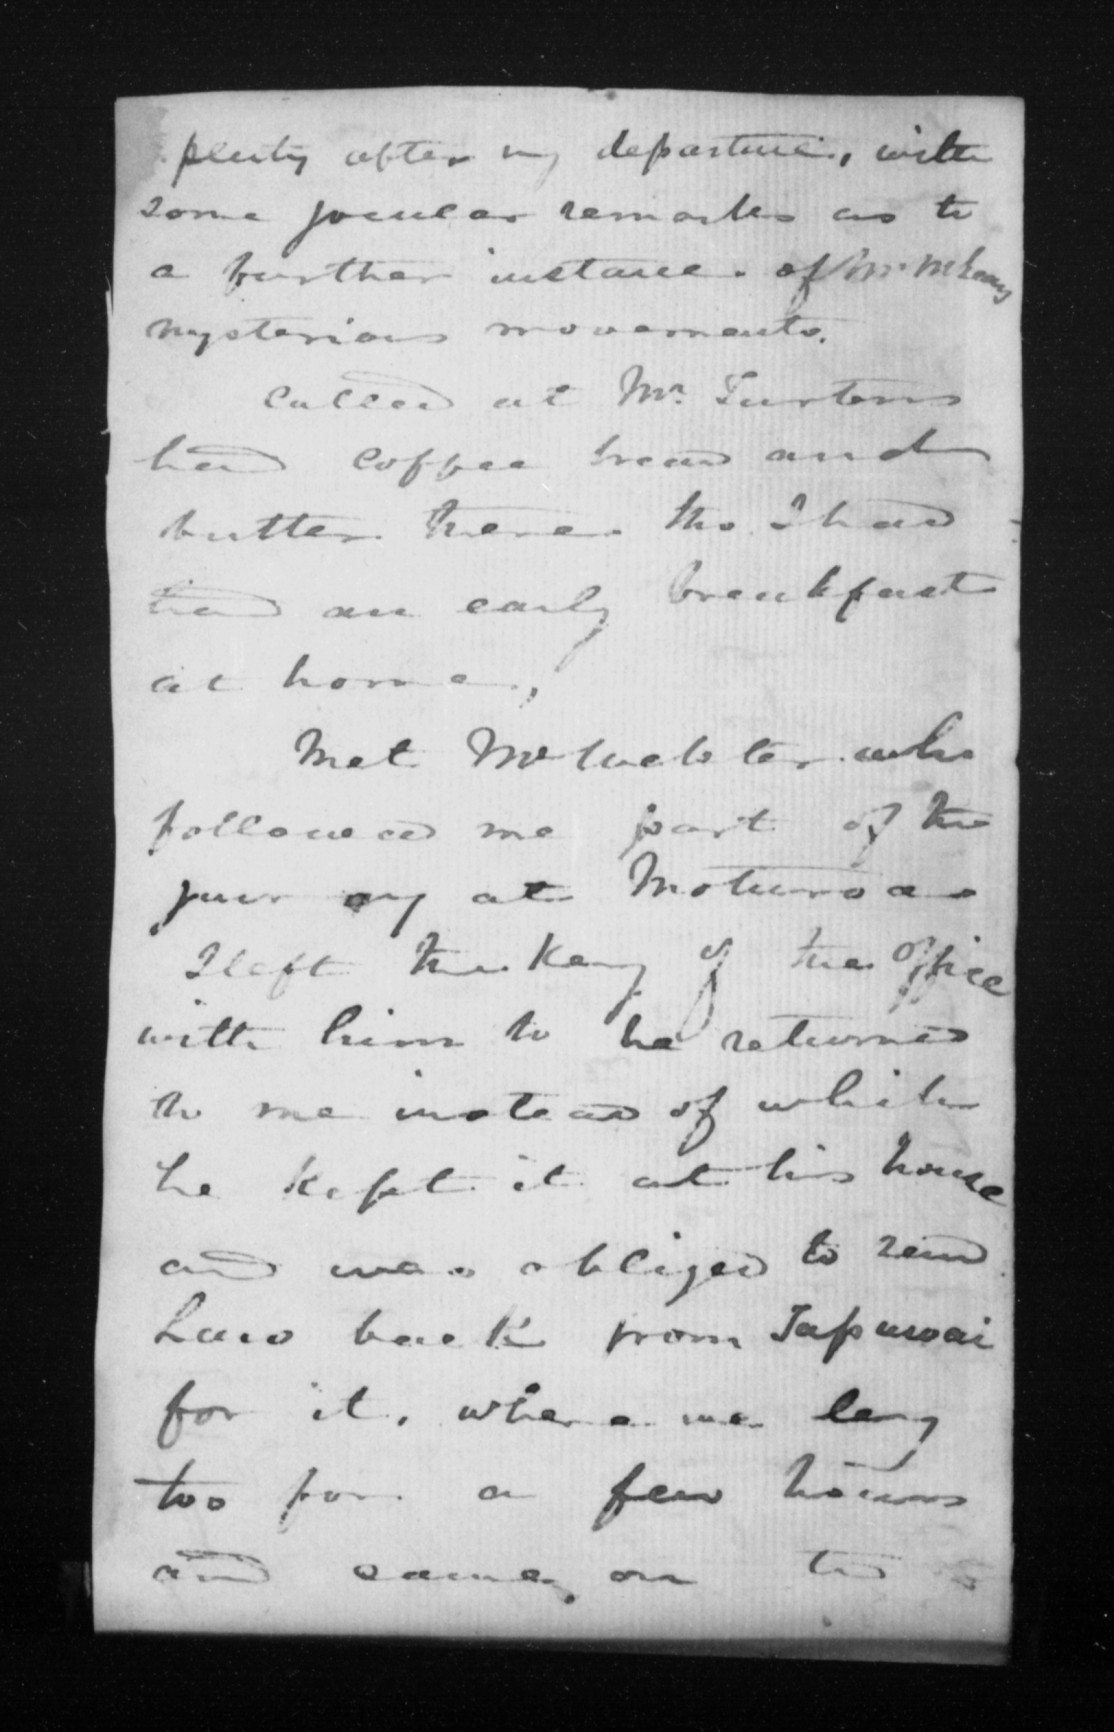 plenty after my departure, with
some jocular remarks as to
a further instance of Mr. McLeans
mysterious movements.
Called at Mr. Turtons
had coffee bread and
butter there tho I had
had an early breakfast
at home,
Met Mr Webster who
followed me part of the
jour ey at Moturoa
I left the key of the office
with him to be returned
to me instead of which
he kept it at his house
and was obliged to send
Law back from Tapuwai
for it, where we lay
too for a few hours
and came on to